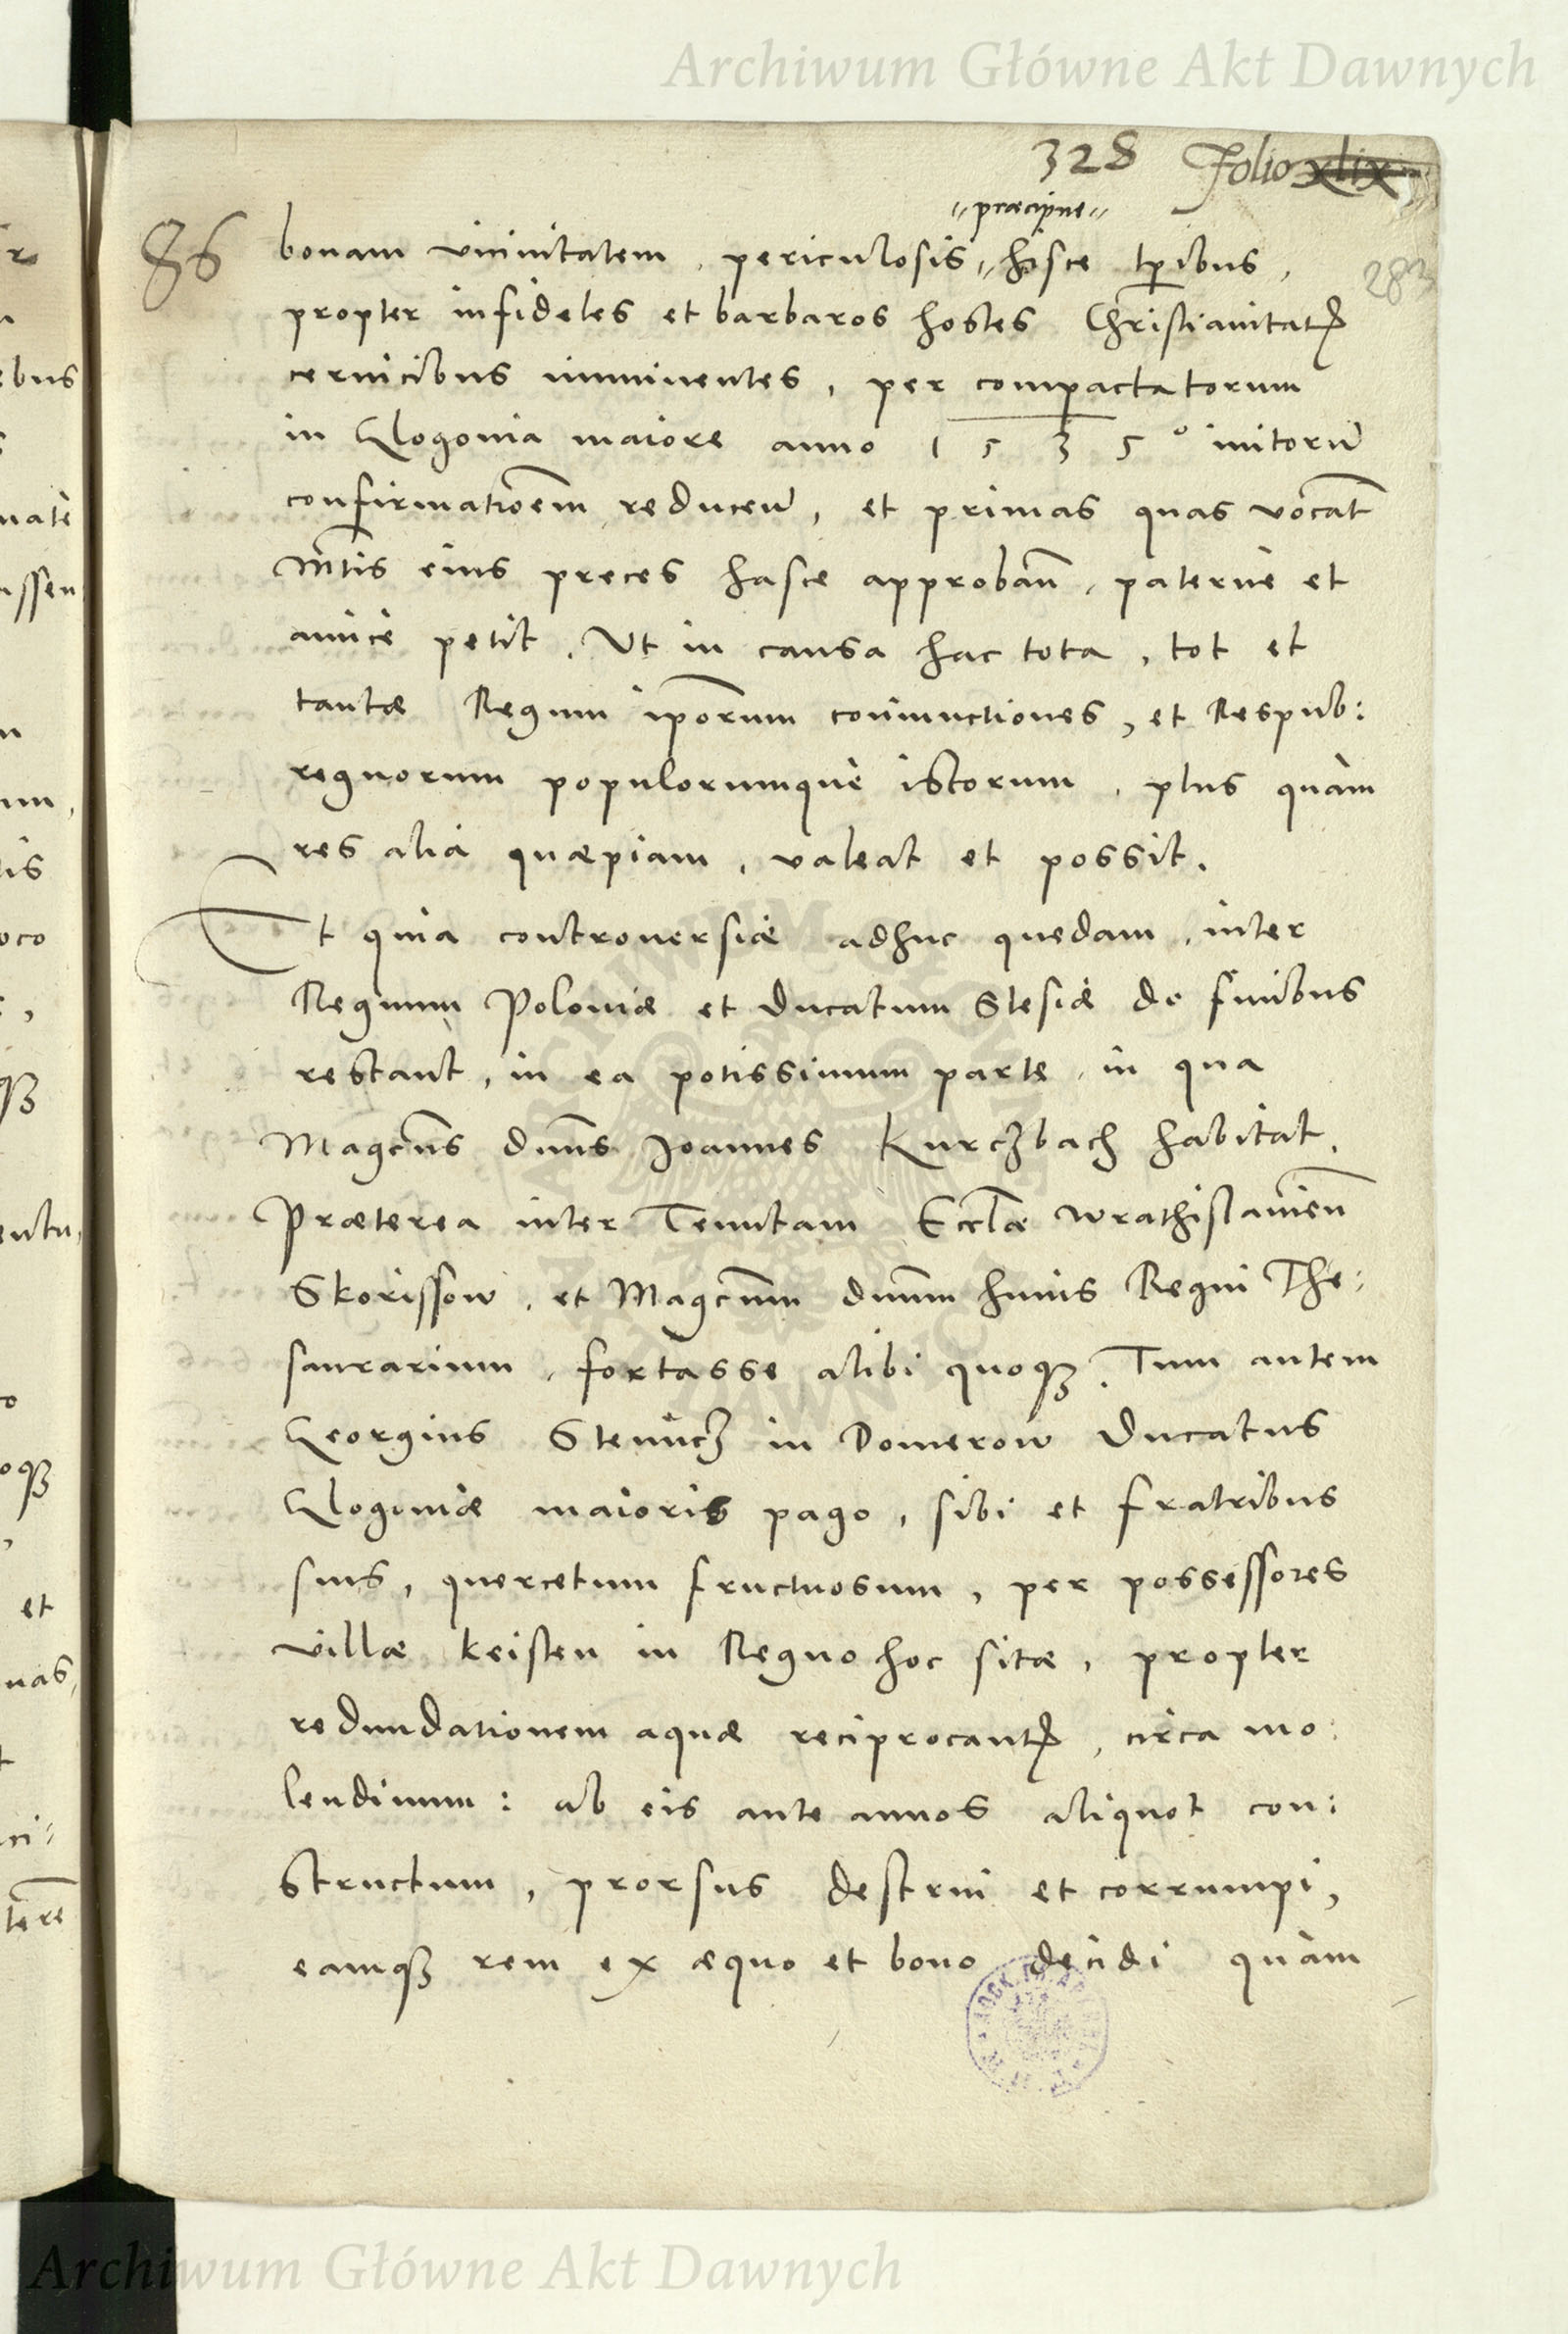 Archiwum Główne Akt Dawnych
328 Folio xlix
præcipue
86 bonam vicinitatem, periculosis, hisce tp̄ibus,
283
propter infideles et barbaros hostes Christianitatꝭ
ceruicibus imminentes, per compactatorum
in Glogouia maiore anno 1535º initorū
confirmatiōem reduceн̄, et primas quas vocāt
Mtis eius preces hasce approban̄, paterne et
amicè petit, Vt in causa hac tota, tot et
tantæ Regum ip̄orum coniunctiones, et Respub:
regnorum populorumquè istorum, plus quàm
res alia quæpiam, valeat et possit.
Et quia controuersiæ adhuc quedam, inter
Regnum Poloniæ et Ducatum Slesiæ de finibus
restant, in ea potissimum parte, in qua
Magcūs dn̄us Joannes Kurczbach habitat.
Præterea inter Tenutam Eccl̄æ Wrathislauien̄
Skorissow, et Magcūm dnūm huius Regni The:
saurarium, fortasse alibi quoqꝫ. Tum autem
Georgius Stenicz in Domerow Ducatus
Glogouiæ maioris pago, sibi et fratribus
suis, quercetum fructuosum, per possessores
villæ Keisten in Regno hoc sitæ, propter
redundationem aquæ reciprocantꝭ, circa mo:
lendinum: ab eis ante annos aliquot con:
structum, prorsus destrui et corrumpi,
eamqꝫ rem ex æquo et bono decidi quàm
Archiwum Główne Akt Dawnych